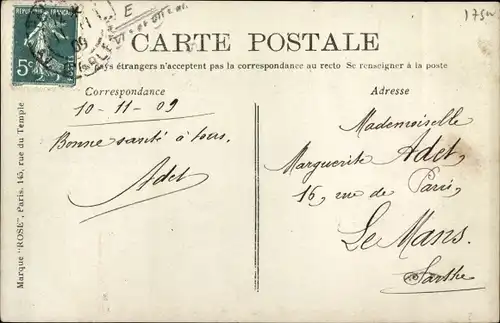 1754
E
11
09
5c
CARTE POSTALE
pays étrangers n'acceptent pas la correspondance au recto Se renseigner à la poste
Correspondance
Adresse
10-11-09
Bonne santé à tous.
Adet
Mademoiselle
Marguerite Adet,
16, rue de Paris,
Le Mans.
Sarthe
Marque "ROSE", Paris, 145, rue du Temple